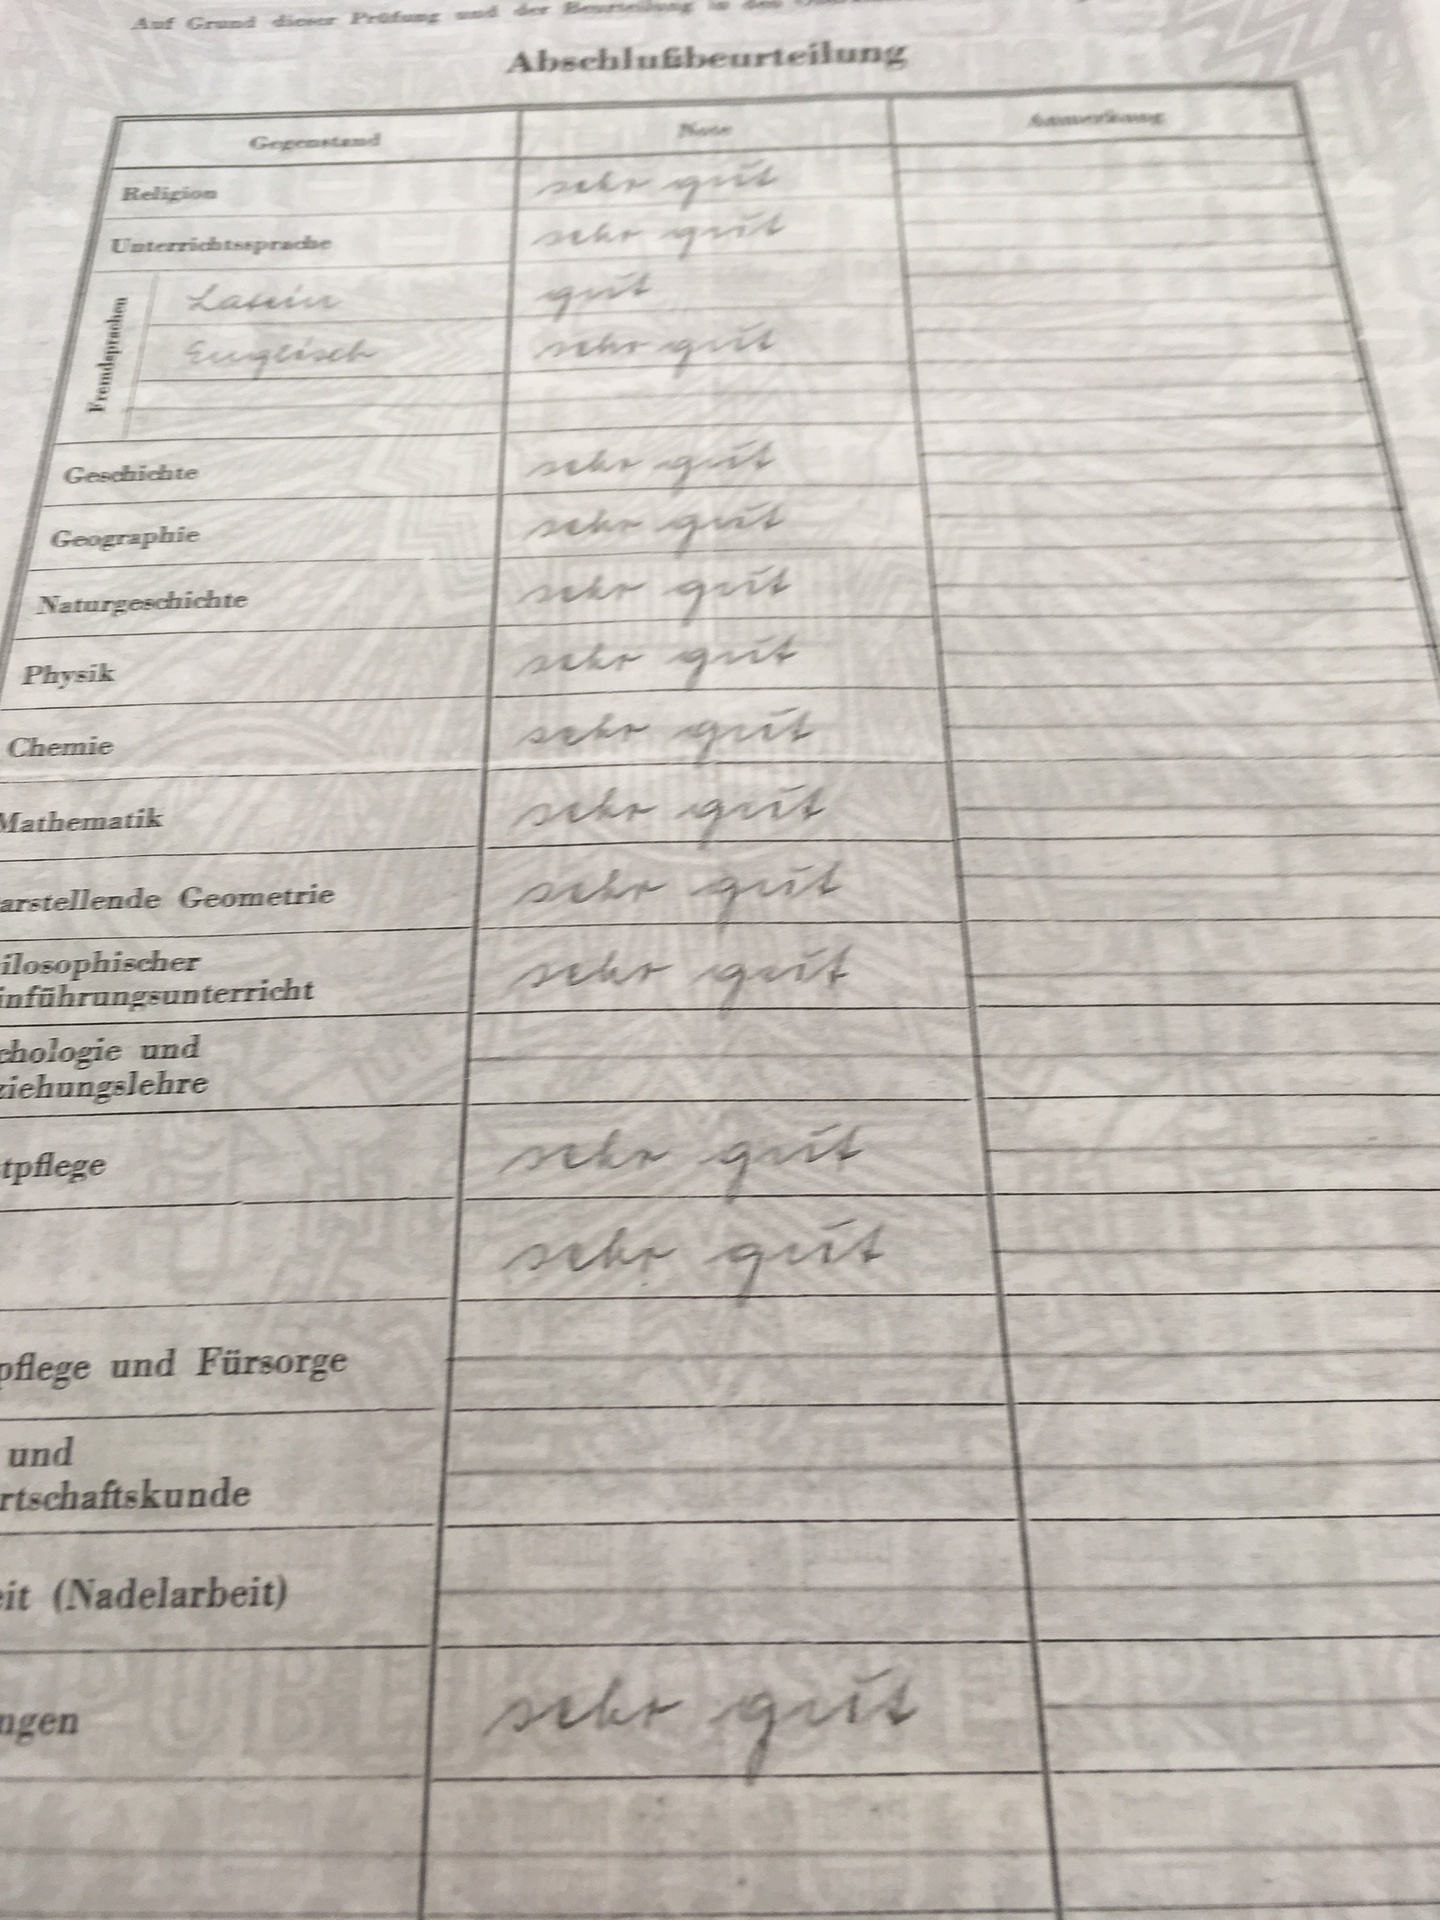 Auf Grund dieser Prüfung und der Beurteilung in den
Abschlußbeurteilung
Gegenstand Note Anmerkung
Religion sehr gut
Unterrichtssprache sehr gut
Fremdsprachen
Latein gut
Englisch sehr gut
Geschichte sehr gut
Geographie sehr gut
Naturgeschichte sehr gut
Physik sehr gut
Chemie sehr gut
Mathematik sehr gut
arstellende Geometrie sehr gut
ilosophischer
inführungsunterricht sehr gut
chologie und
ziehungslehre
tpflege sehr gut
sehr gut
pflege und Fürsorge
und
rtschaftskunde
eit (Nadelarbeit)
ngen sehr gut